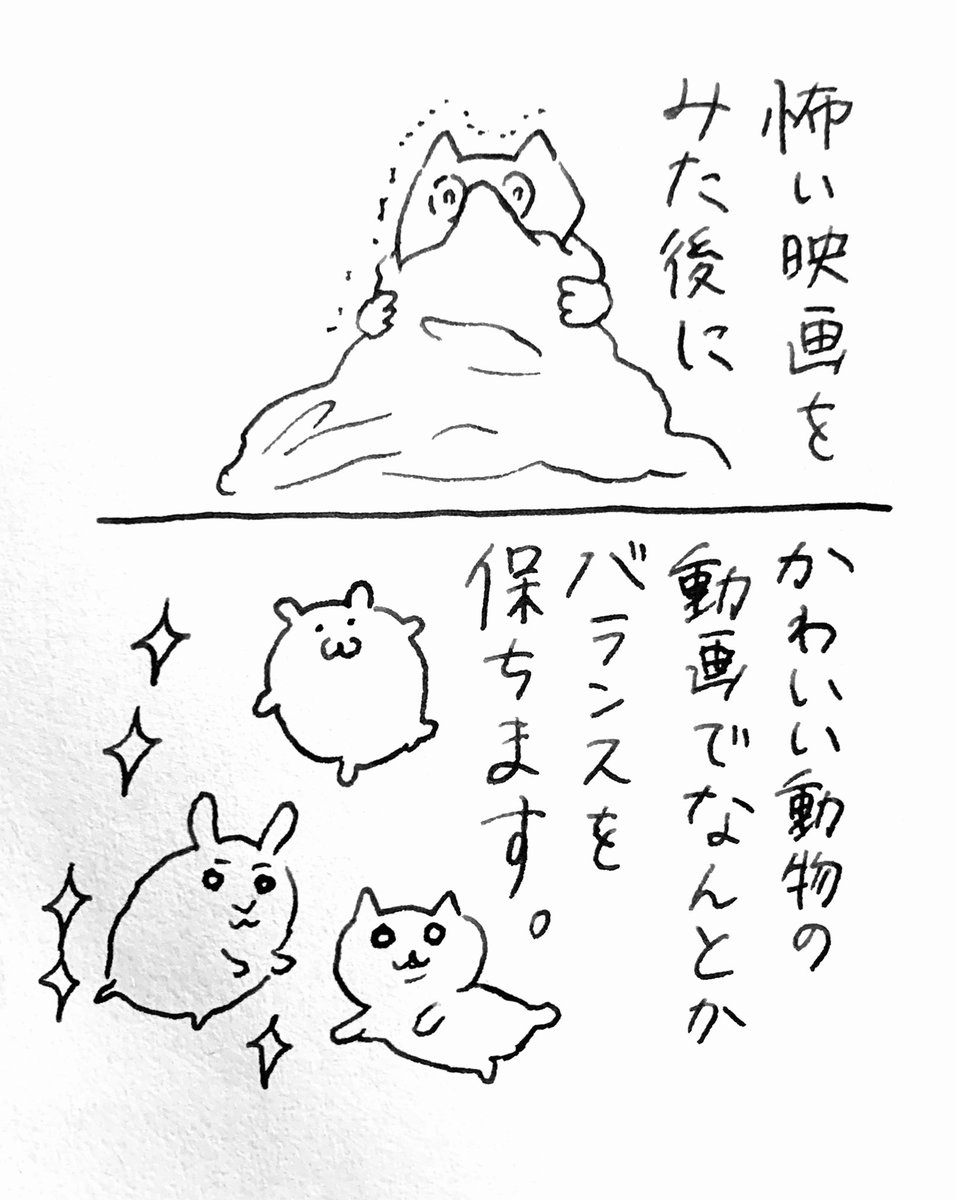 怖い映画を
みた後に
かわいい動物の
動画でなんとか
バランスを
保ちます。